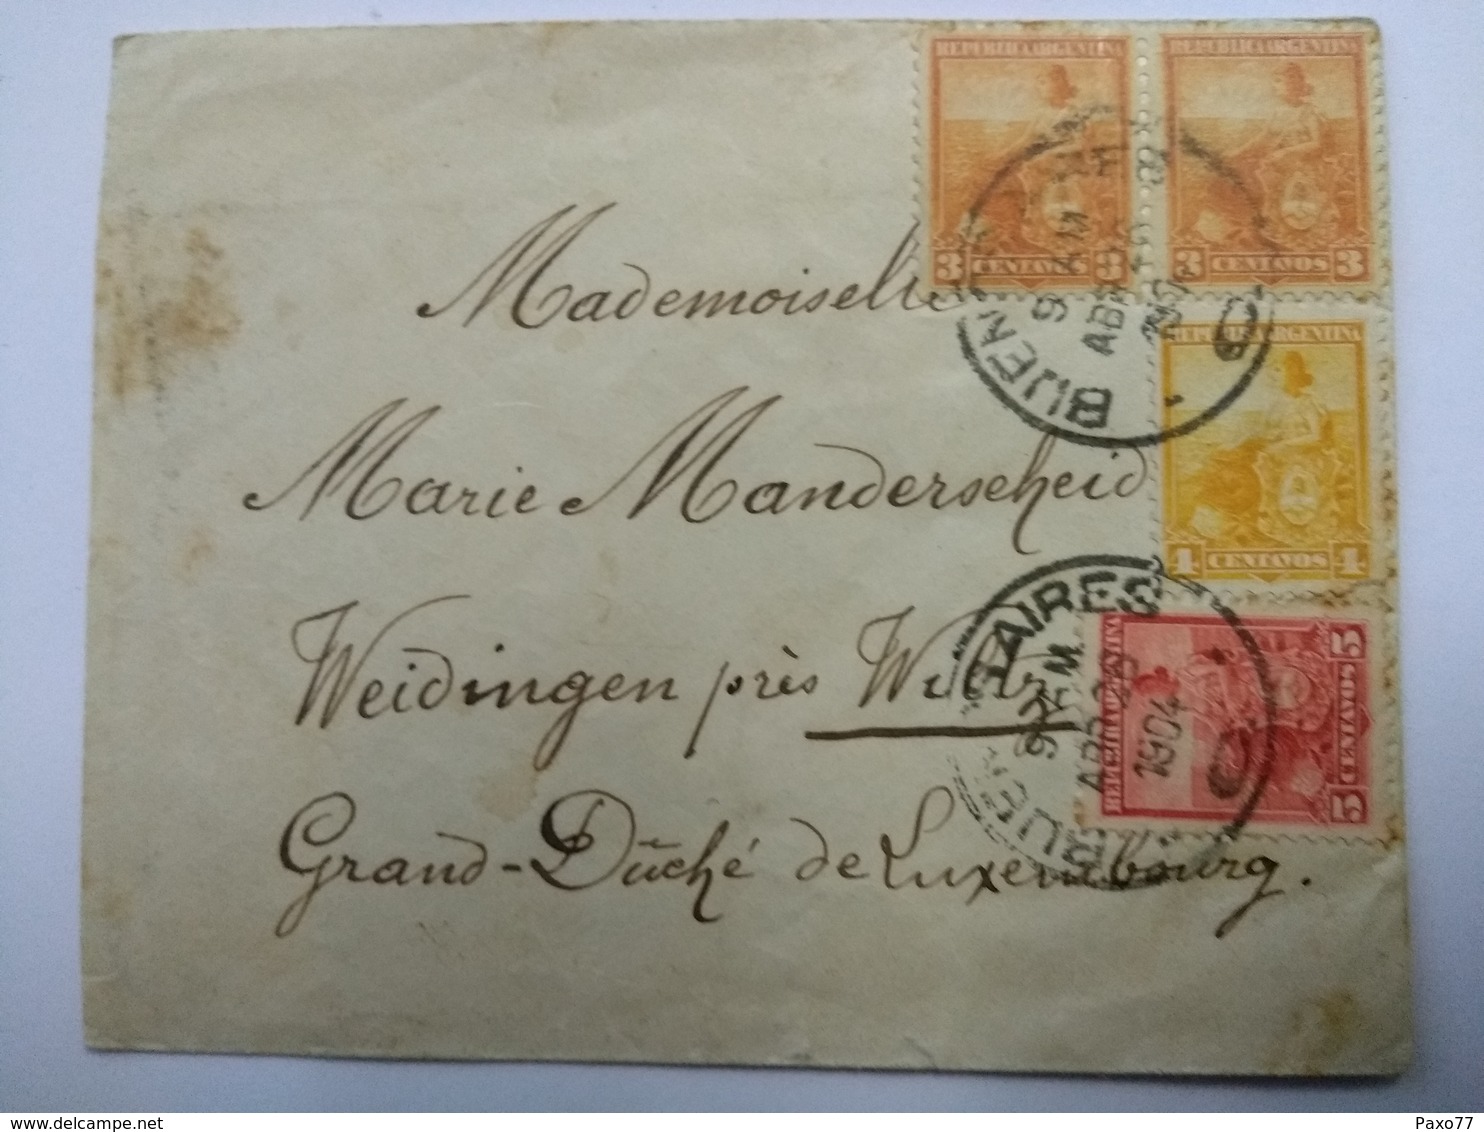 REPUBLICA ARGENTINA REPUBLICA ARGENTINA
3 CENTAVOS 3 3 CENTAVOS 3
BUENOS AIRES
9 AM
ABR
1904
Mademoiselle
REPUBLICA ARGENTINA
4 CENTAVOS 4
Marie Manderscheid
Weidingen près Wiltz
AIRES
9 AM.
ABR 25
1904
BUEN
REPUBLICA ARGENTINA
5 CENTAVOS 5
Grand-Dūché de Luxembourg.
delcampe.net
Paxo77